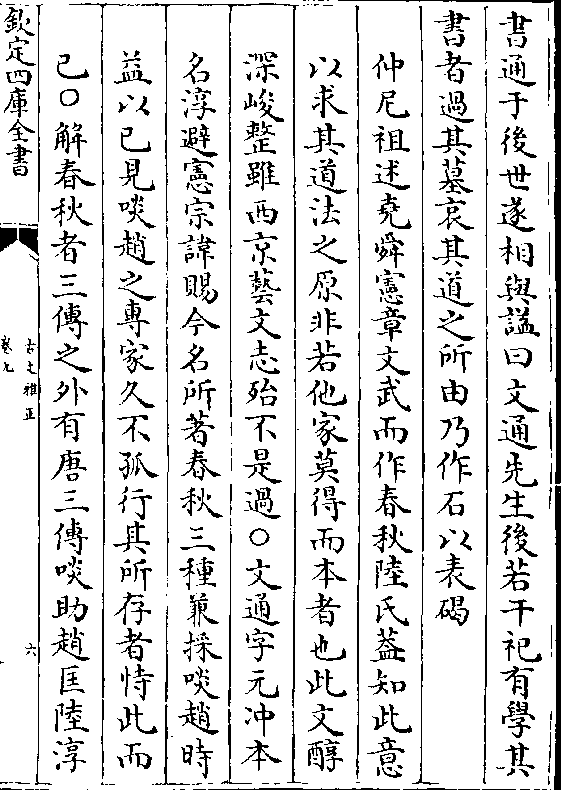 書通于後世遂相與諡曰文通先生後若干祀有學其
書者過其墓哀其道之所由乃作石以表碣
仲尼祖述堯舜憲章文武而作春秋陸氏葢知此意
以求其道法之原非若他家莫得而本者也此文醇
深峻整雖西京藝文志殆不是過○文通字元冲本
名淳避憲宗諱賜今名所著春秋三種兼採啖趙時
益以已見啖趙之專家久不孤行其所存者恃此而
已○解春秋者三傳之外有唐三傳啖助趙匡陸淳
欽定四庫全書
古文雅正
卷九
六